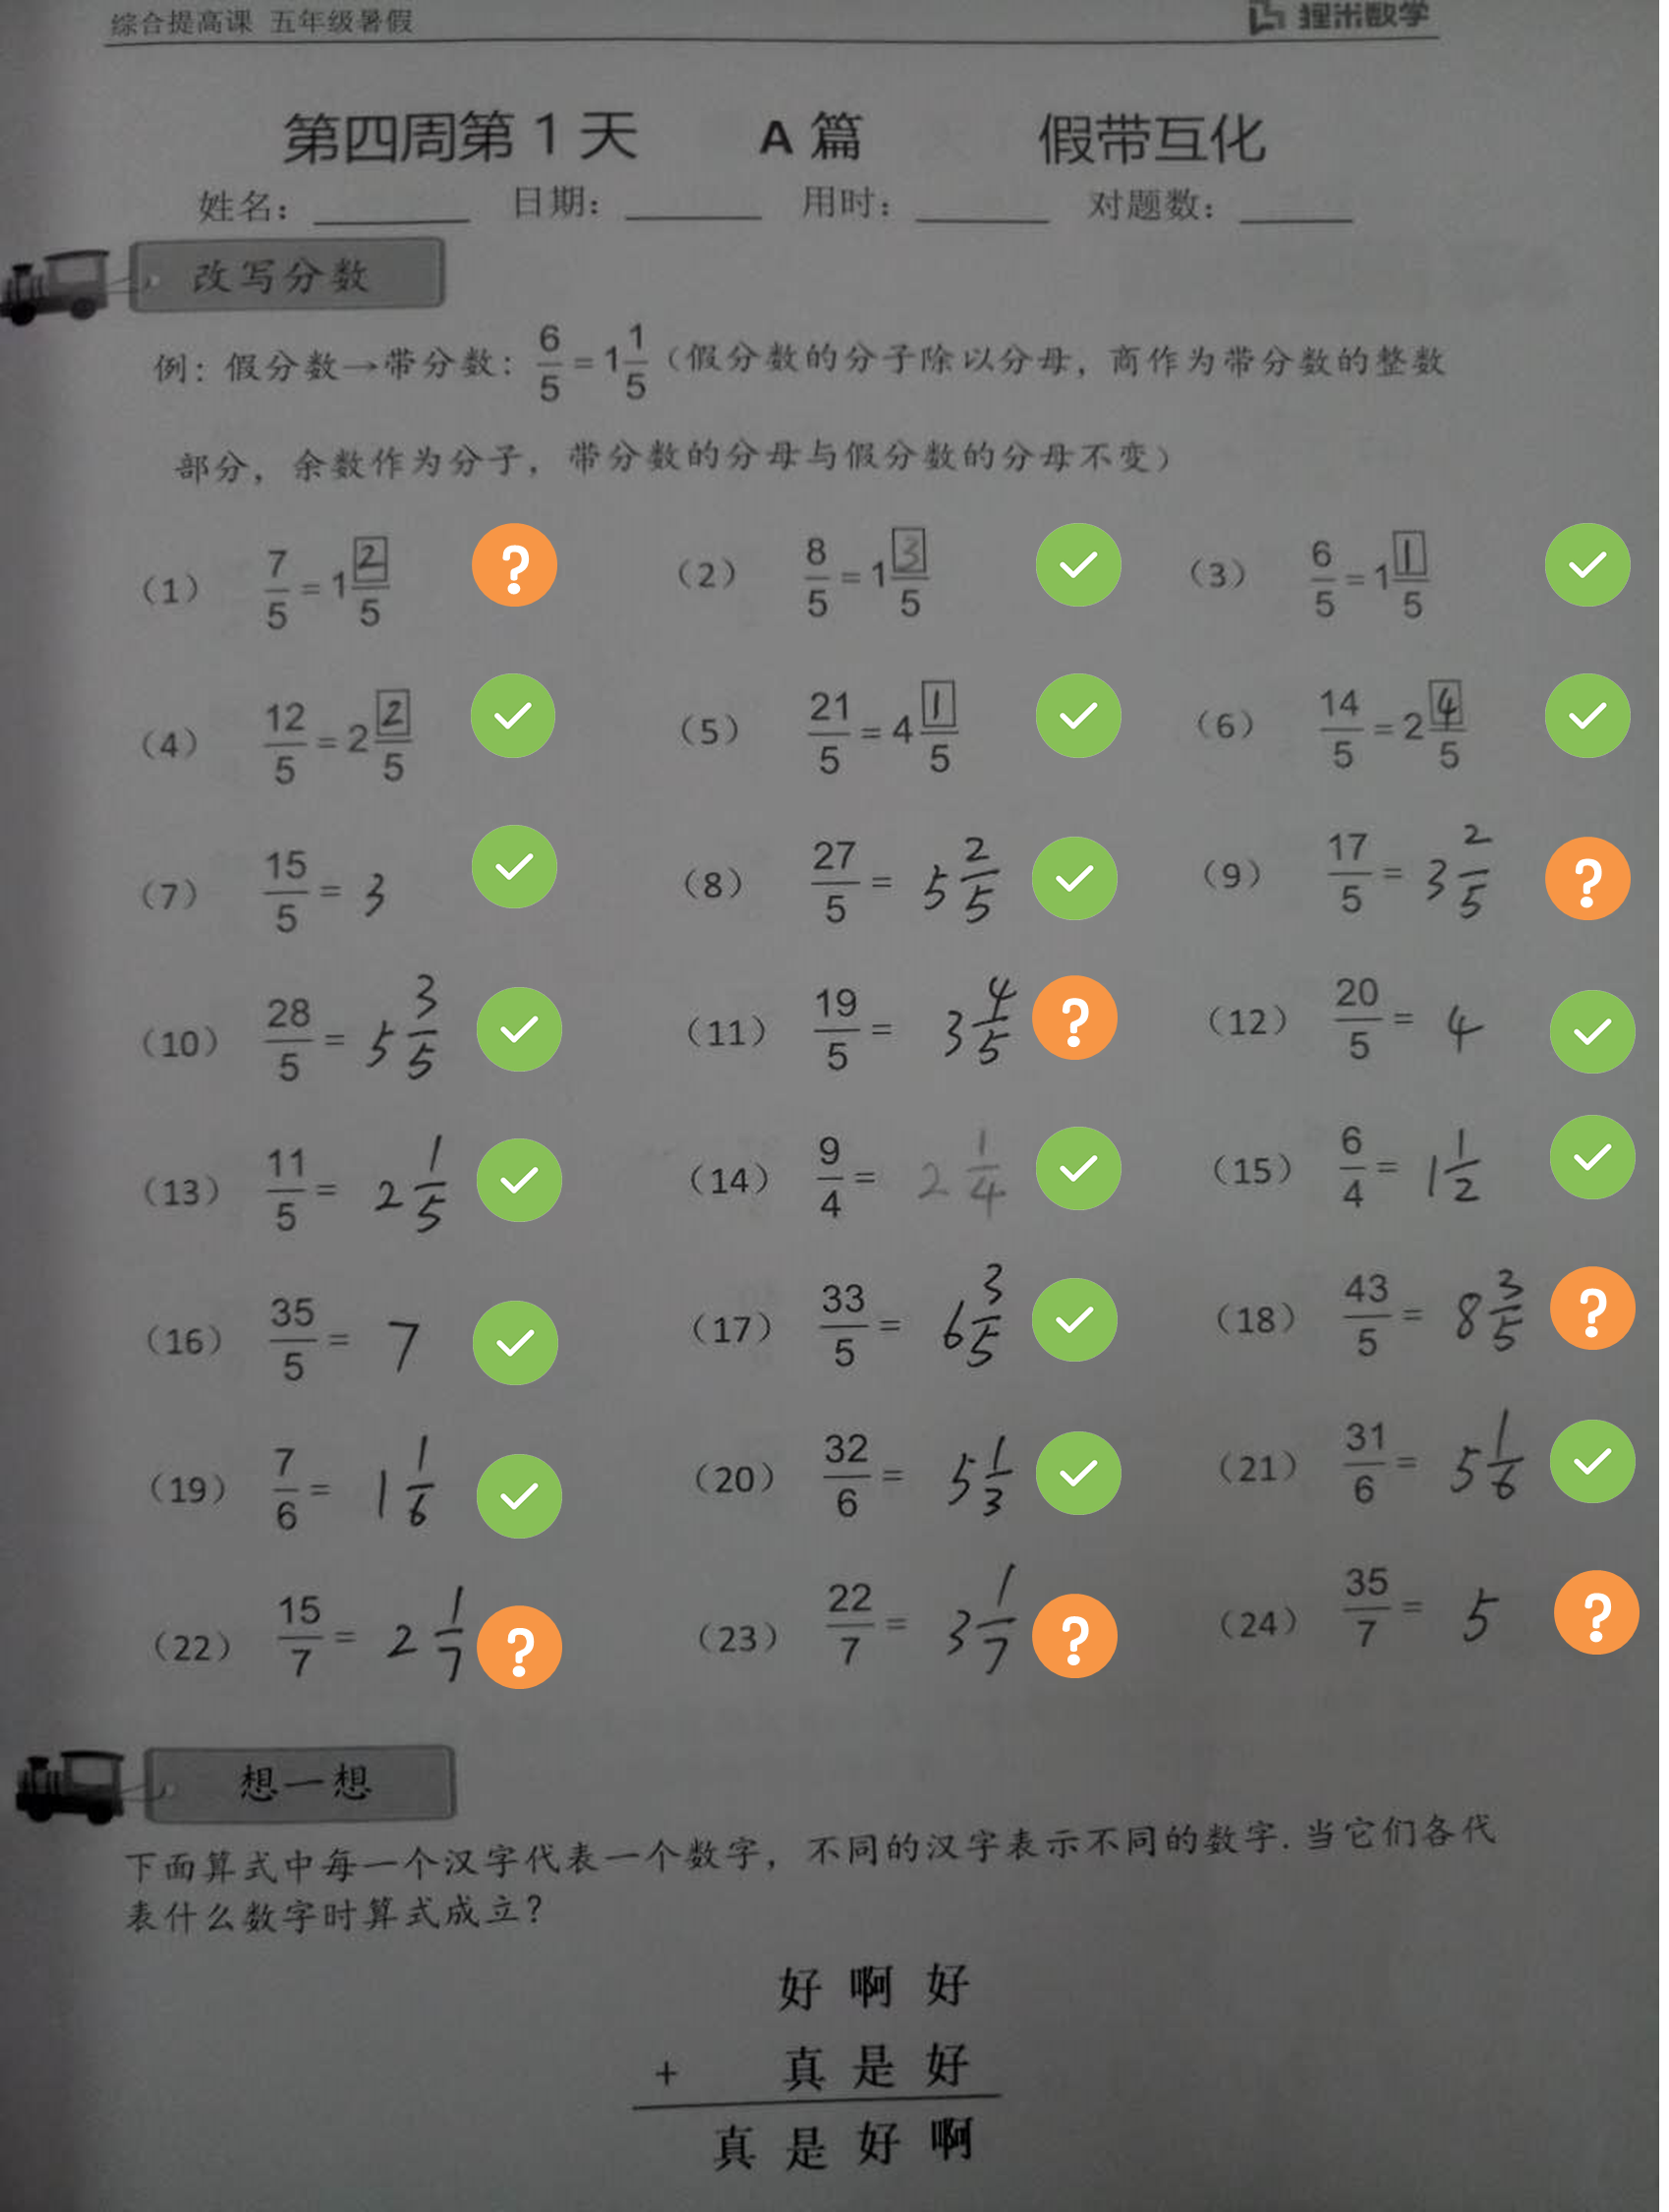 综合提高课 五年级暑假 狸米数学
第四周第1天 A篇 假带互化
姓名: 日期: 用时: 对题数:
改写分数
例: 假分数→带分数: 6/5 = 1 1/5 (假分数的分子除以分母, 商作为带分数的整数
部分, 余数作为分子, 带分数的分母与假分数的分母不变)
(1) 7/5 = 1 2/5 ? (2) 8/5 = 1 3/5 (3) 6/5 = 1 1/5
(4) 12/5 = 2 2/5 (5) 21/5 = 4 1/5 (6) 14/5 = 2 4/5
(7) 15/5 = 3 (8) 27/5 = 5 2/5 (9) 17/5 = 3 2/5 ?
(10) 28/5 = 5 3/5 (11) 19/5 = 3 4/5 ? (12) 20/5 = 4
(13) 11/5 = 2 1/5 (14) 9/4 = 2 1/4 (15) 6/4 = 1 1/2
(16) 35/5 = 7 (17) 33/5 = 6 3/5 (18) 43/5 = 8 3/5 ?
(19) 7/6 = 1 1/6 (20) 32/6 = 5 1/3 (21) 31/6 = 5 1/6
(22) 15/7 = 2 1/7 ? (23) 22/7 = 3 1/7 ? (24) 35/7 = 5 ?
想一想
下面算式中每一个汉字代表一个数字, 不同的汉字表示不同的数字. 当它们各代
表什么数字时算式成立?
好啊好
+ 真是好
真是好啊